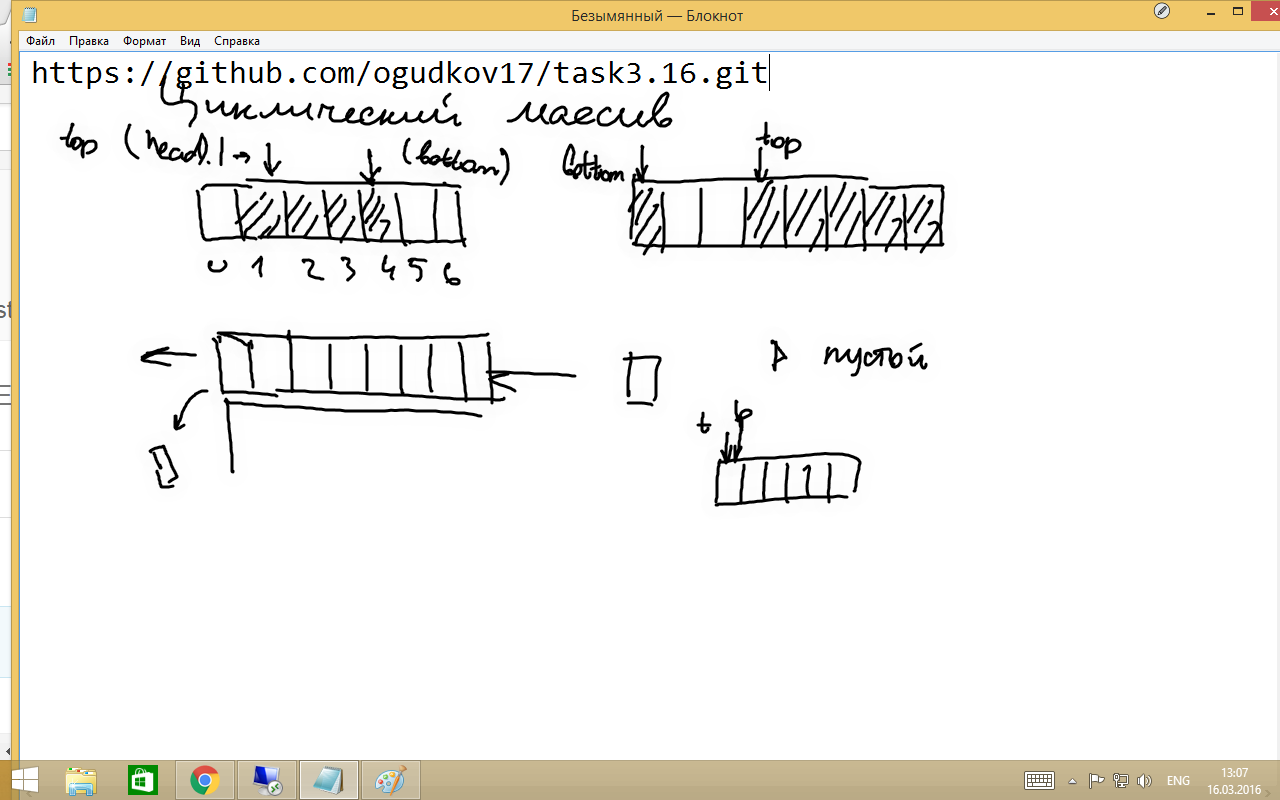 Безымянный — Блокнот
Файл Правка Формат Вид Справка
https://github.com/ogudkov17/task3.16.git
Циклический массив
top (head) (bottom)
bottom top
0 1 2 3 4 5 6
пустой
t b
ENG
13:07
16.03.2016